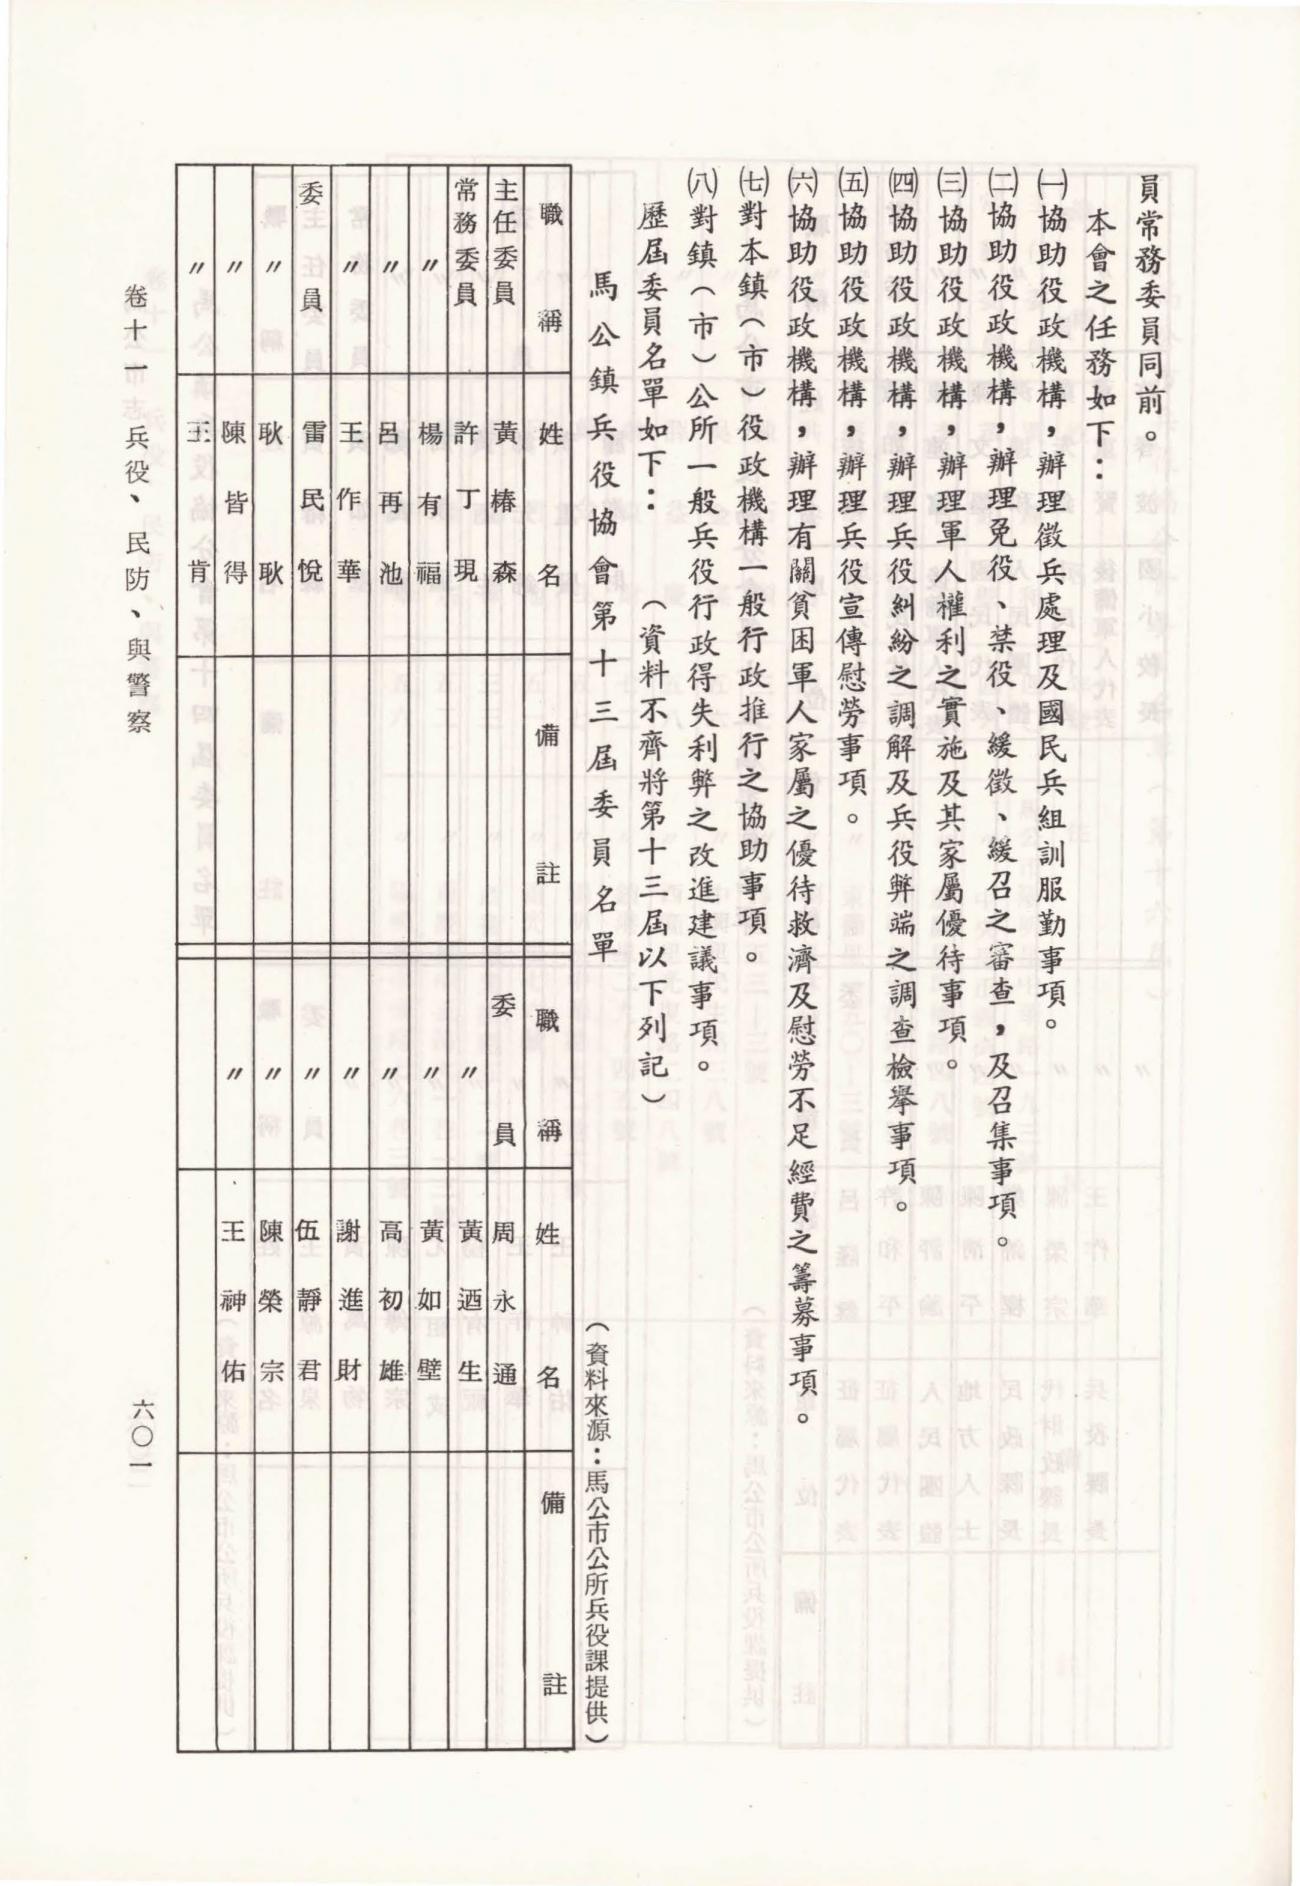 員常務委員同前。
本會之任務如下：
㈠協助役政機構，辦理徵兵處理及國民兵組訓服勤事項。
㈡協助役政機構，辦理免役、禁役、緩徵、緩召之審查，及召集事項。
㈢協助役政機構，辦理軍人權利之實施及其家屬優待事項。
㈣協助役政機構，辦理兵役糾紛之調解及兵役弊端之調查檢舉事項。
㈤協助役政機構，辦理兵役宣傳慰勞事項。
㈥協助役政機構，辦理有關貧困軍人家屬之優待救濟及慰勞不足經費之籌募事項。
㈦對本鎮（市）役政機構一般行政推行之協助事項。
㈧對鎮（市）公所一般兵役行政得失利弊之改進建議事項。
歷屆委員名單如下：（資料不齊將第十三屆以下列記）
馬公鎮兵役協會第十三屆委員名單（資料來源：馬公市公所兵役課提供）
職稱 姓名 備註 職稱 姓名 備註
主任委員 黃椿森 委員 周永通
常務委員 許丁現 〃 黃迺生
〃 楊有福 〃 黃如壁
〃 呂再池 〃 高初雄
〃 王作華 〃 謝進財
委員 雷民悅 〃 伍靜君
〃 耿耿 〃 陳榮宗
〃 陳皆得 〃 王神佑
〃 王肯
卷十一 兵役、民防、與警察
六〇一